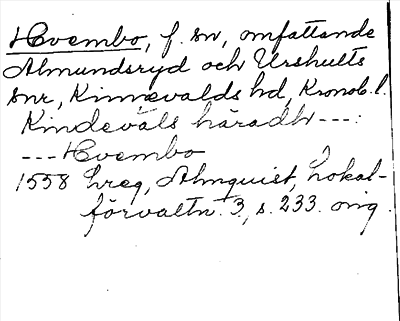 Hvembo, f. sn, omfattande
Almundsryd och Urshults
snr, Kinnevalds hd, Kronob. l.
Kindeväls häradh ---:
--- Hvembo
1558 hreg, Almquist, Lokal-
förvaltn. 3, s. 233. orig.